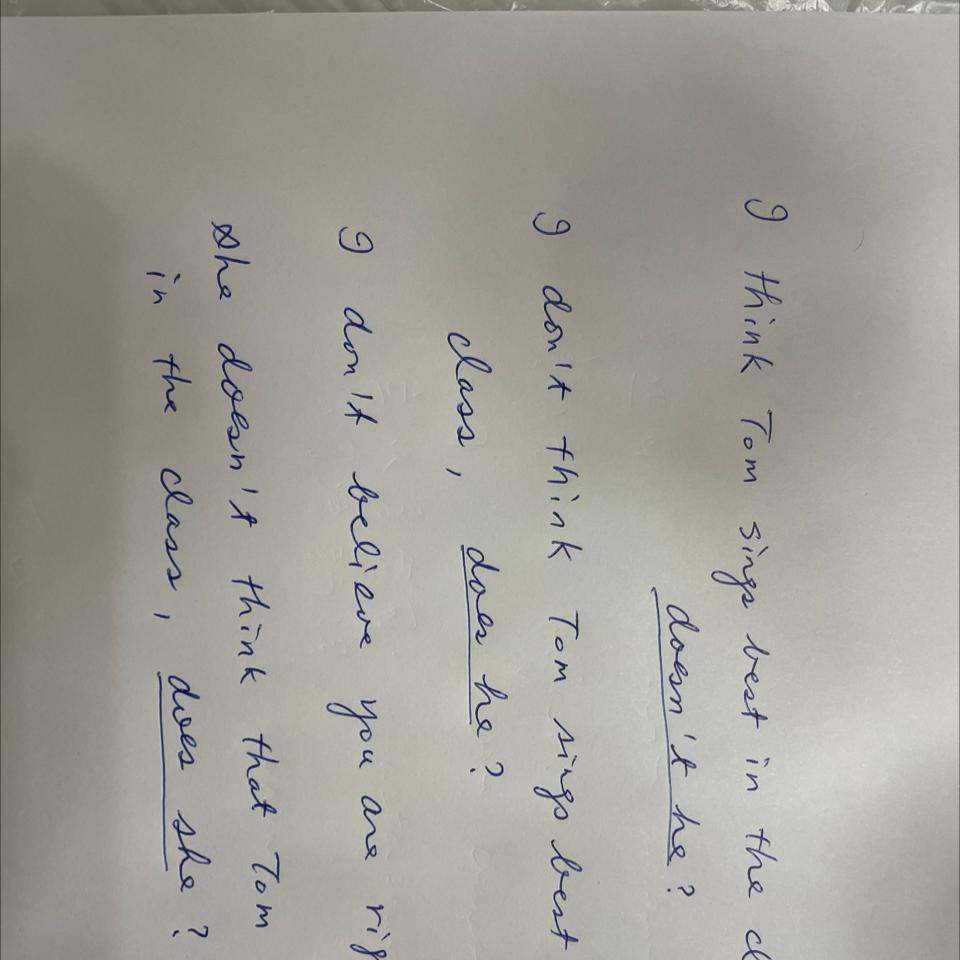 I think Tom sings best in the
doesn't he?
I don't think Tom sings best
class, does he?
I don't believe you are
she doesn't think that Tom
in the class, does she?